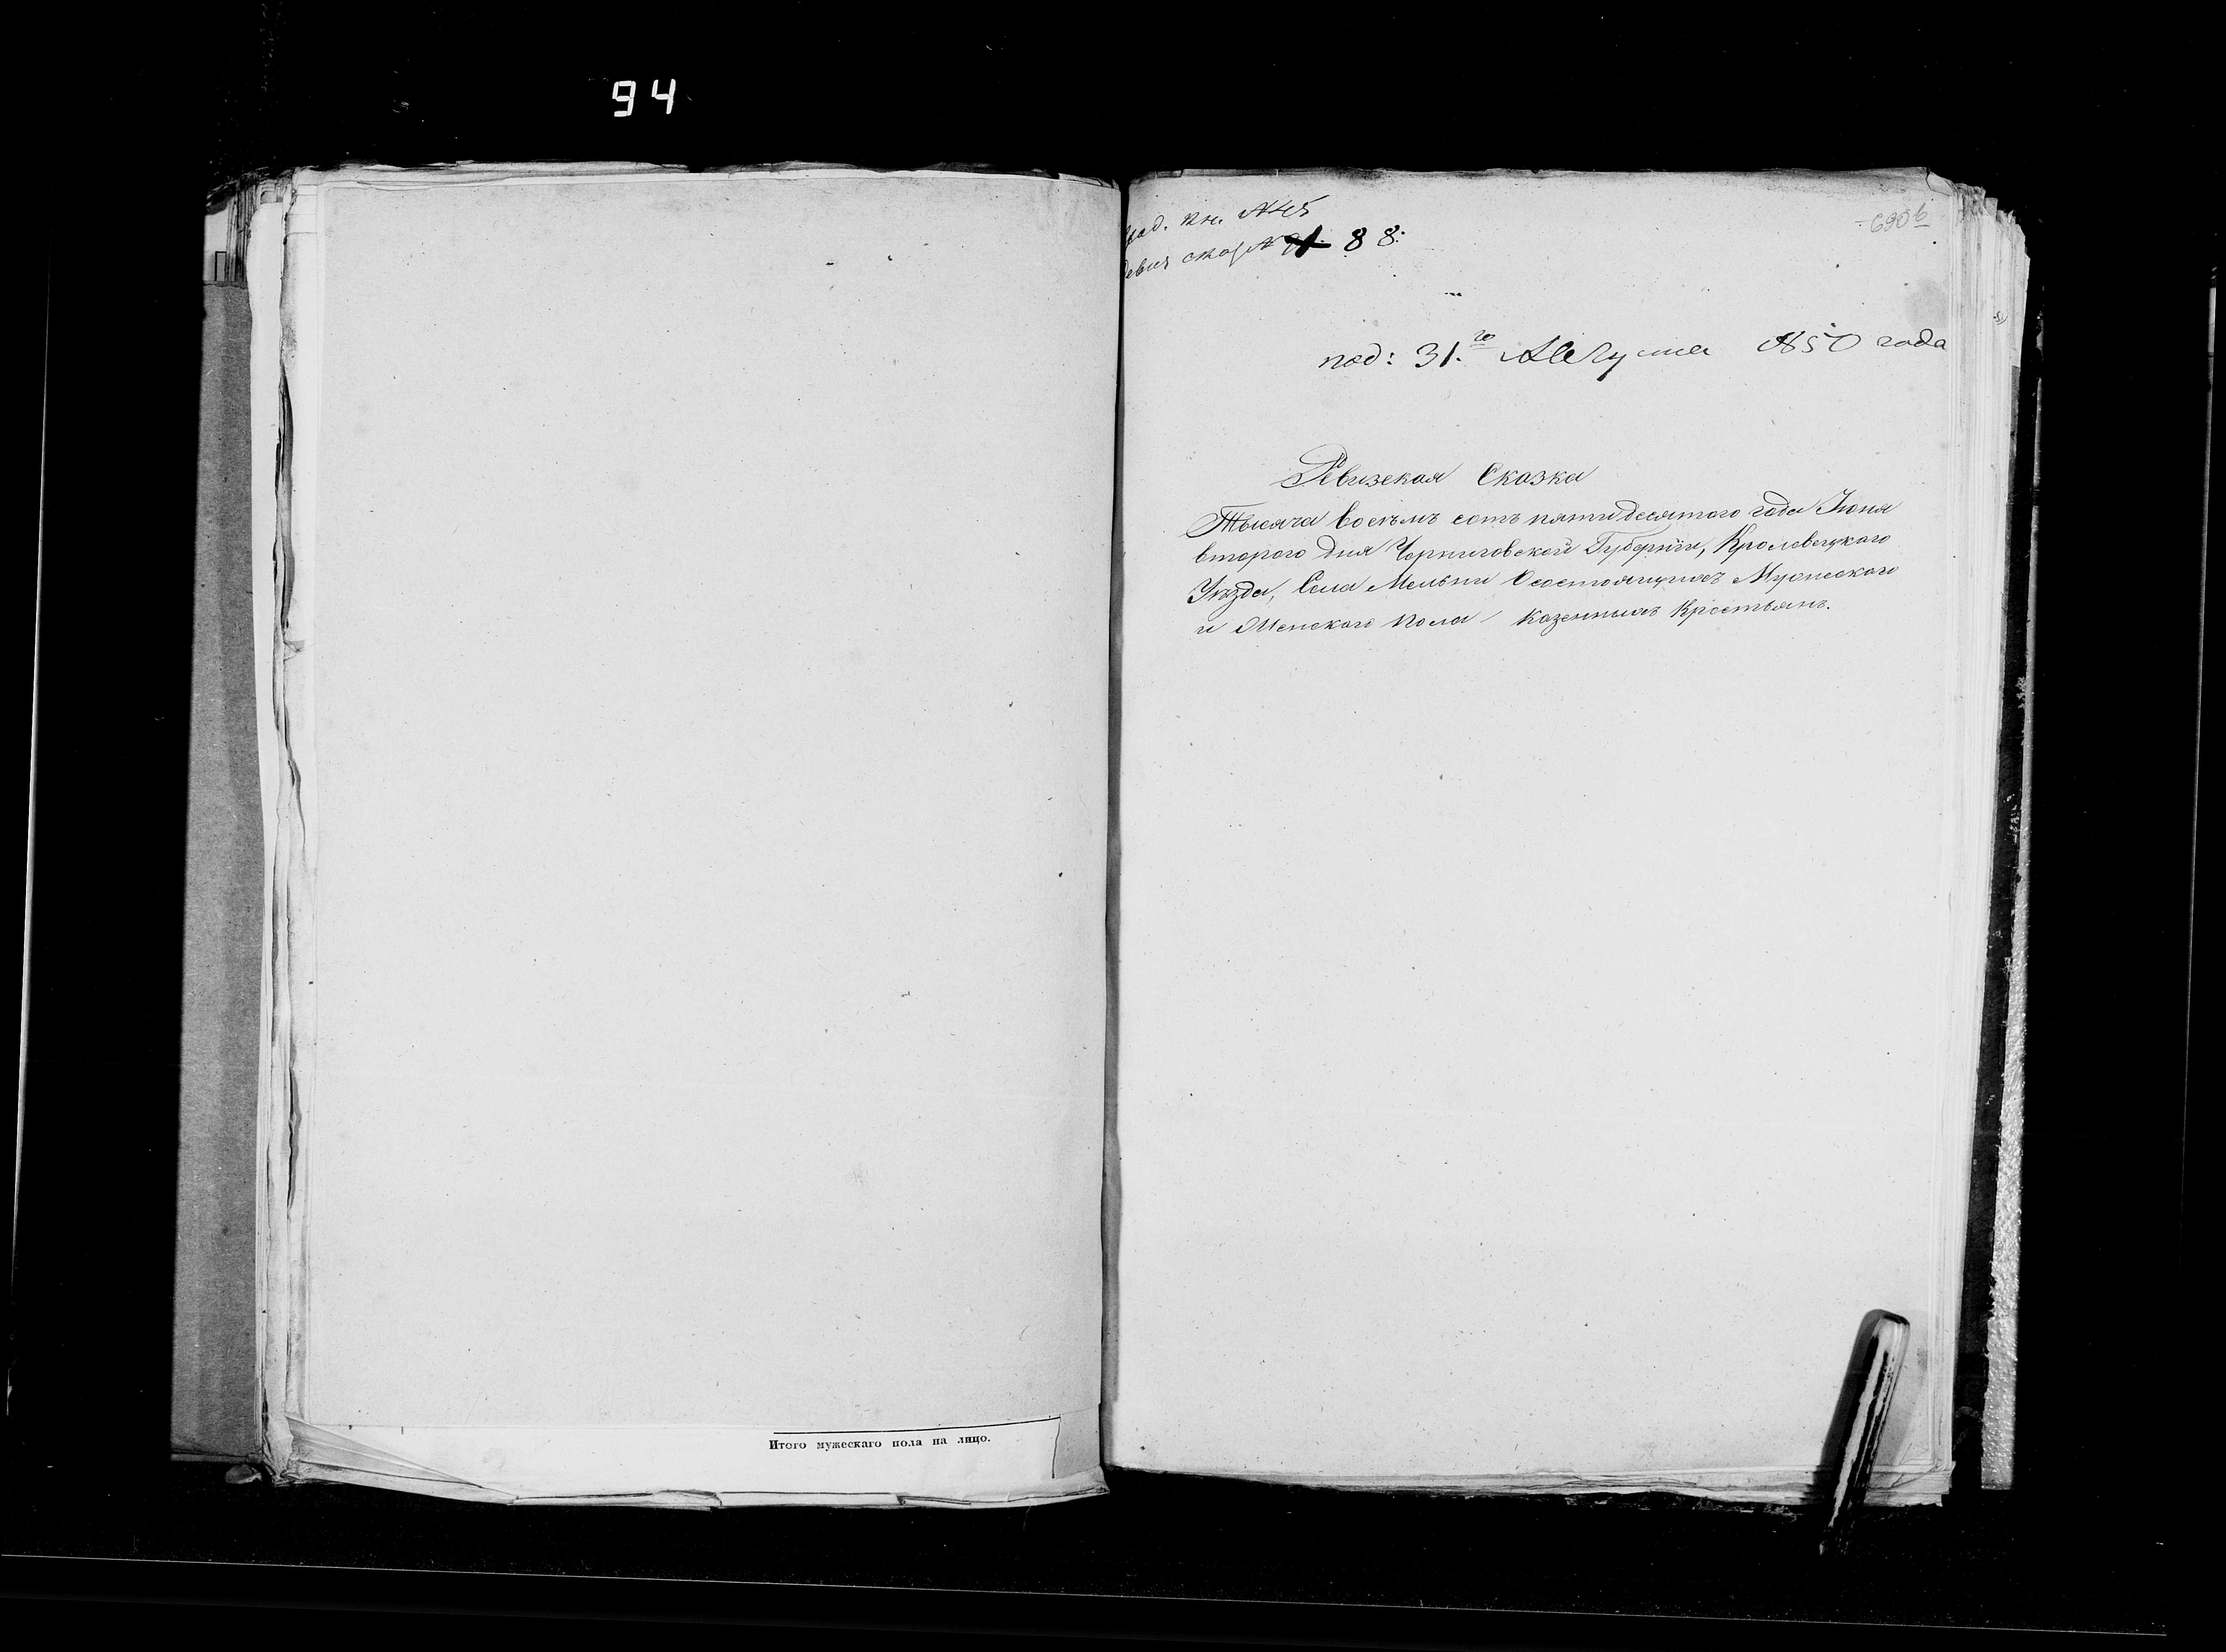 94
Итого мужескаго пола на лицо.
кн. №45
сказ № 88:
690
под: 31.го Августа 1850 года
Ревизская Сказка
Тысяча восемь сотъ пятидесятого года Іюня
второго дня Черниговской Губерніи, Кролевецкого
Уѣзда, Села Мельни О состоящихъ Мужеского
и Женского пола казенныхъ Крестьянъ.